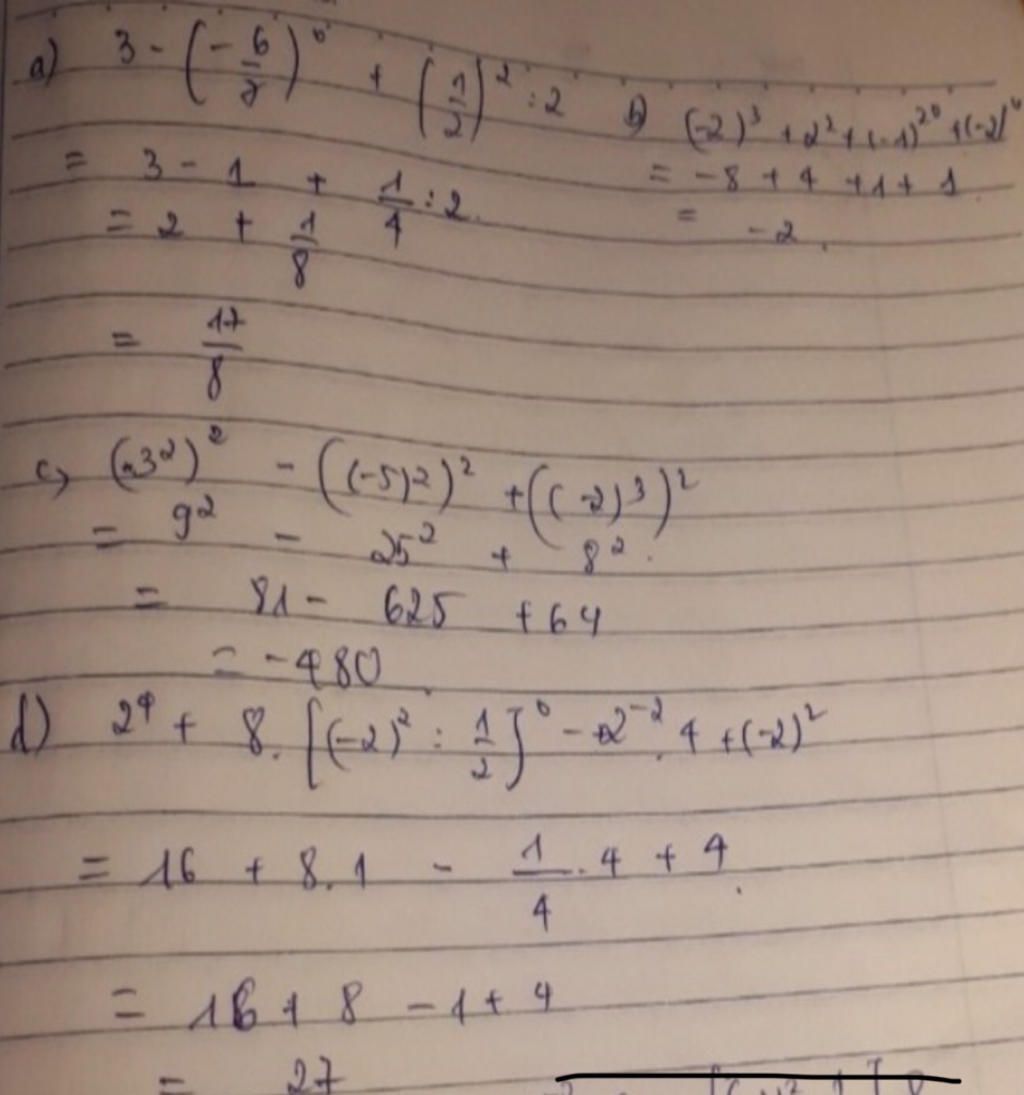 a) 3 - (-6/7)^0 + (1/2)^2 : 2
= 3 - 1 + 1/4 : 2
= 2 + 1/8
= 17/8
b) (-2)^3 + 2^2 + (-1)^20 + (-2)^0
= -8 + 4 + 1 + 1
= -2
c) (3^2)^2 - ((-5)^2)^2 + ((-2)^3)^2
= 9^2 - 25^2 + 8^2
= 81 - 625 + 64
= -480
d) 2^4 + 8. [(-2)^2 : 1/2]^0 - 2^-2 . 4 + (-2)^2
= 16 + 8.1 - 1/4 . 4 + 4
= 16 + 8 - 1 + 4
= 27